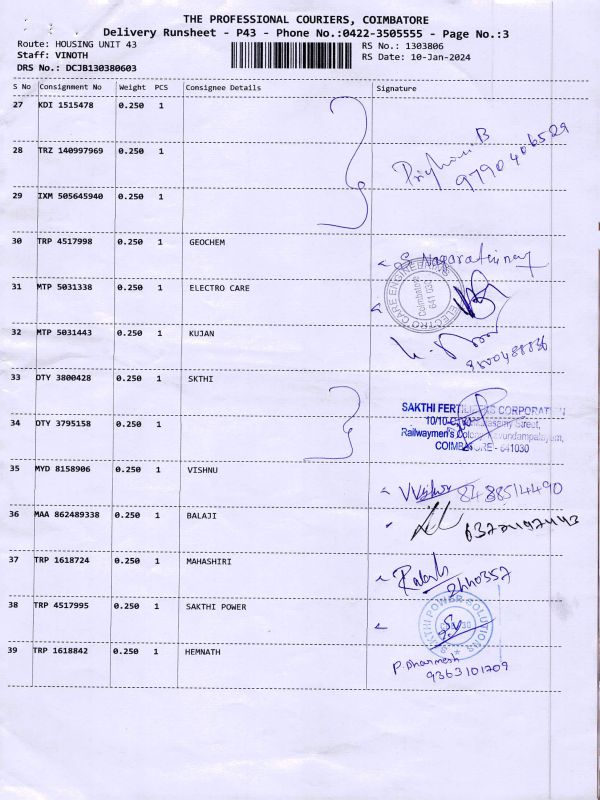 THE PROFESSIONAL COURIERS, COIMBATORE
Delivery Runsheet - P43 - Phone No.:0422-3505555 - Page No.:3
Route: HOUSING UNIT 43 RS No.: 1303806
Staff: VINOTH RS Date: 10-Jan-2024
DRS No.: DCJB130380603
S No Consignment No Weight PCS Consignee Details Signature
27 KDI 1515478 0.250 1
28 TRZ 140997969 0.250 1
B
9790406529
29 IXM 505645940 0.250 1
30 TRP 4517998 0.250 1 GEOCHEM
31 MTP 5031338 0.250 1 ELECTRO CARE
ELECTRO CARE ENGINEERING
Coimbatore
641 031
32 MTP 5031443 0.250 1 KUJAN
33 DTY 3800428 0.250 1 SKTHI
SAKTHI FERTILIZERS CORPORATION
10/10-C, Street,
34 DTY 3795158 0.250 1
Railwaymen's Colony, Kavundampalayam,
COIMBATORE - 641030
35 MYD 8158906 0.250 1 VISHNU
8488514490
36 MAA 862489338 0.250 1 BALAJI
37 TRP 1618724 0.250 1 MAHASHIRI
2440357
38 TRP 4517995 0.250 1 SAKTHI POWER
SAKTHI POWER SOLUTIONS
39 TRP 1618842 0.250 1 HEMNATH
P. Dharmesh
9363101709